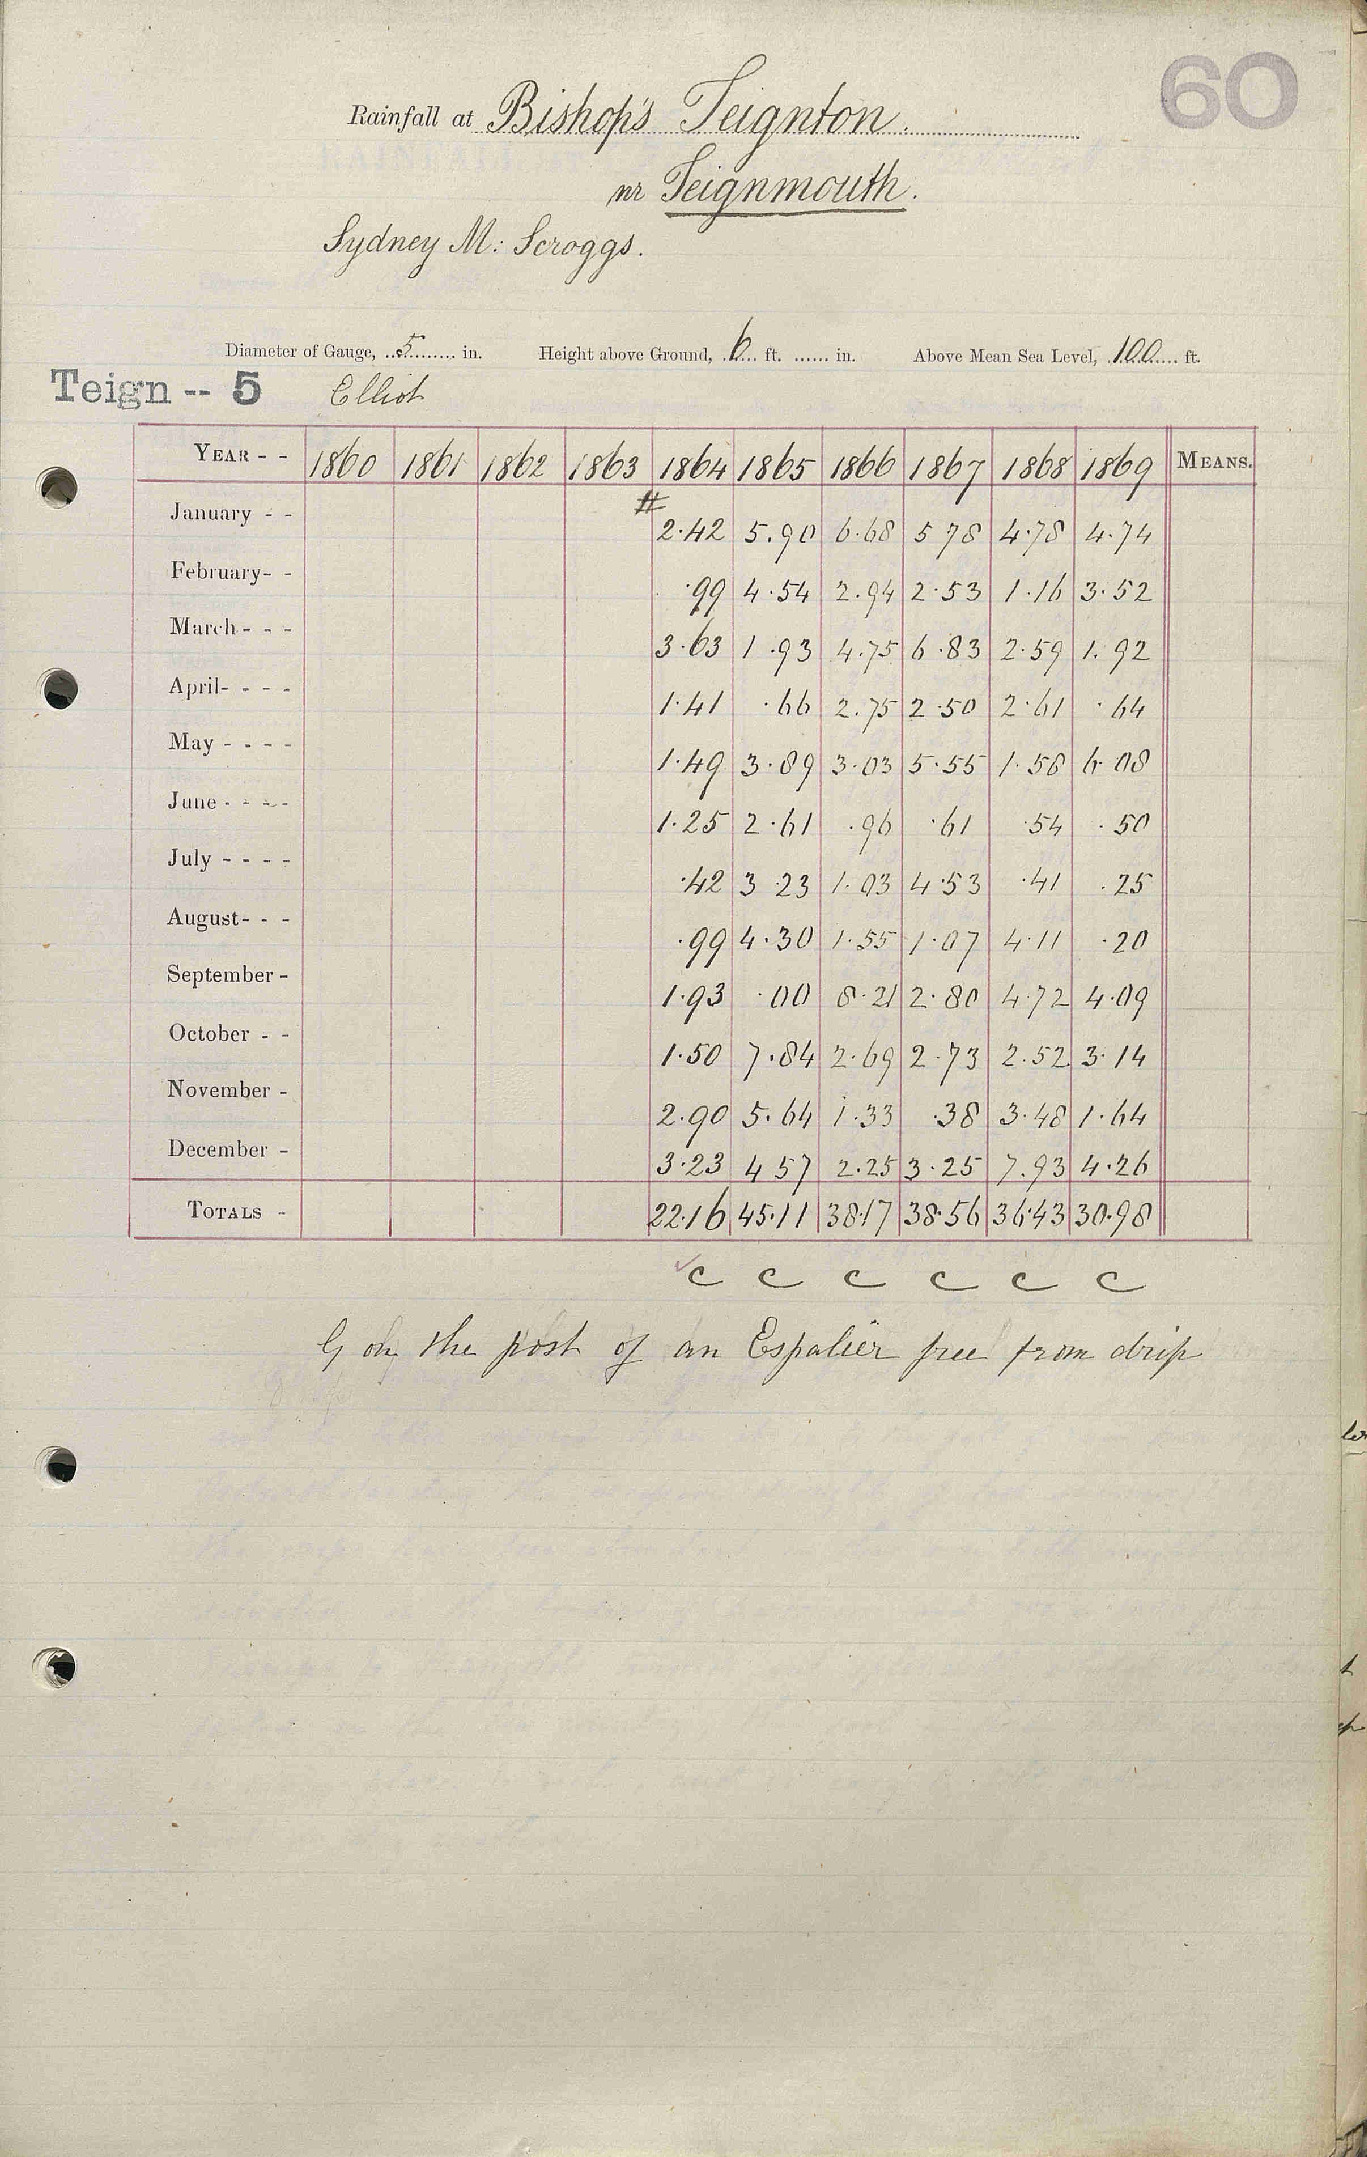 60
Rainfall at Bishop's Teignton.
nr Teignmouth.
Sydney M: Scroggs.
Diameter of Gauge, 5 in. Height above Ground, 6 ft. ...... in. Above Mean Sea Level, 100 ft.
Teign -- 5 Elliot
YEAR - - 1860 1861 1862 1863 1864 1865 1866 1867 1868 1869 MEANS.
#
January - - 2.42 5.90 6.68 5 78 4.78 4.74
February - - .99 4.54 2.94 2.53 1.16 3.52
March - - - 3.63 1.93 4.75 6.83 2.59 1.92
April - - - - 1.41 .66 2.75 2.50 2.61 .64
May - - - - 1.49 3.89 3.03 5.55 1.58 6.08
June - - - - 1.25 2.61 .96 .61 .54 .50
July - - - - .42 3 23 1.03 4.53 .41 .25
August - - - .99 4.30 1.55 1.07 4.11 .20
September - 1.93 .00 8.21 2.80 4.72 4.09
October - - 1.50 7.84 2.69 2.73 2.52 3.14
November - 2.90 5.64 1.33 .38 3.48 1.64
December - 3.23 4 57 2.25 3.25 7.93 4.26
TOTALS - 22.16 45.11 38.17 38.56 36.43 30.98
c c c c c c
G on the post of an Espalier free from drip